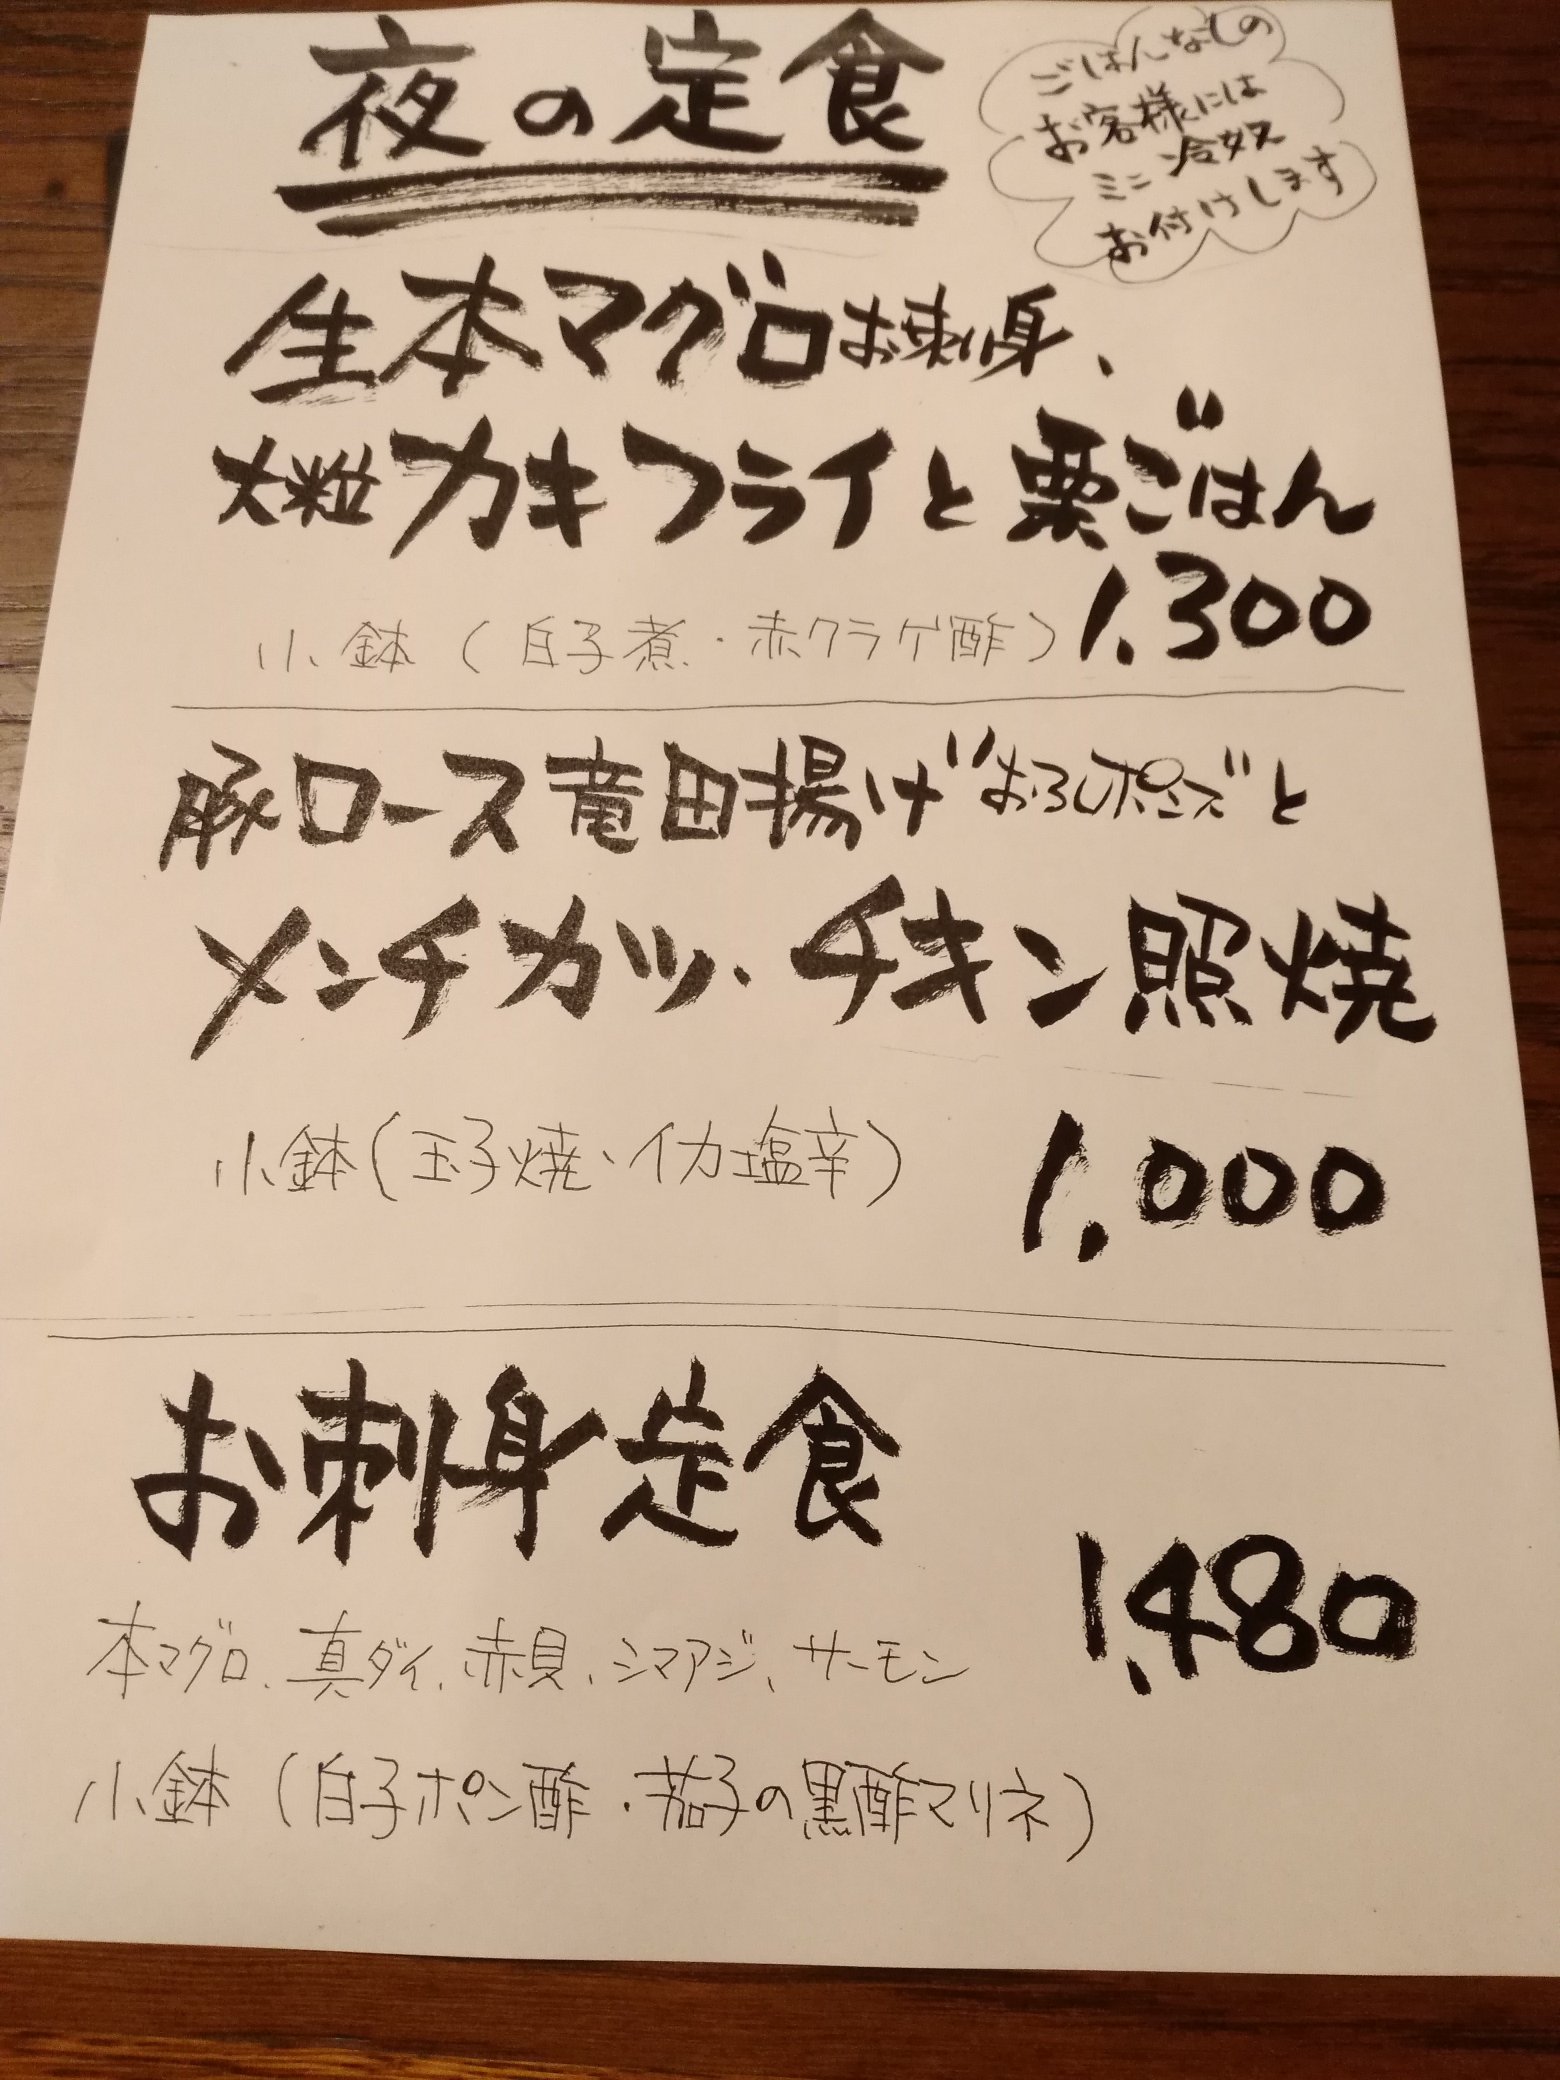 夜の定食
ごはんなしの
お客様には
ミニ冷奴
お付けします
生本マグロお刺身、
大粒カキフライと栗ごはん
1,300
小鉢(白子煮・赤クラゲ酢)
豚ロース竜田揚げ"おろしポンズ"と
メンチカツ、チキン照焼
小鉢(玉子焼・イカ塩辛)
1,000
お刺身定食
1,480
本マグロ、真ダイ、赤貝、シマアジ、サーモン
小鉢(白子ポン酢・茄子の黒酢マリネ)